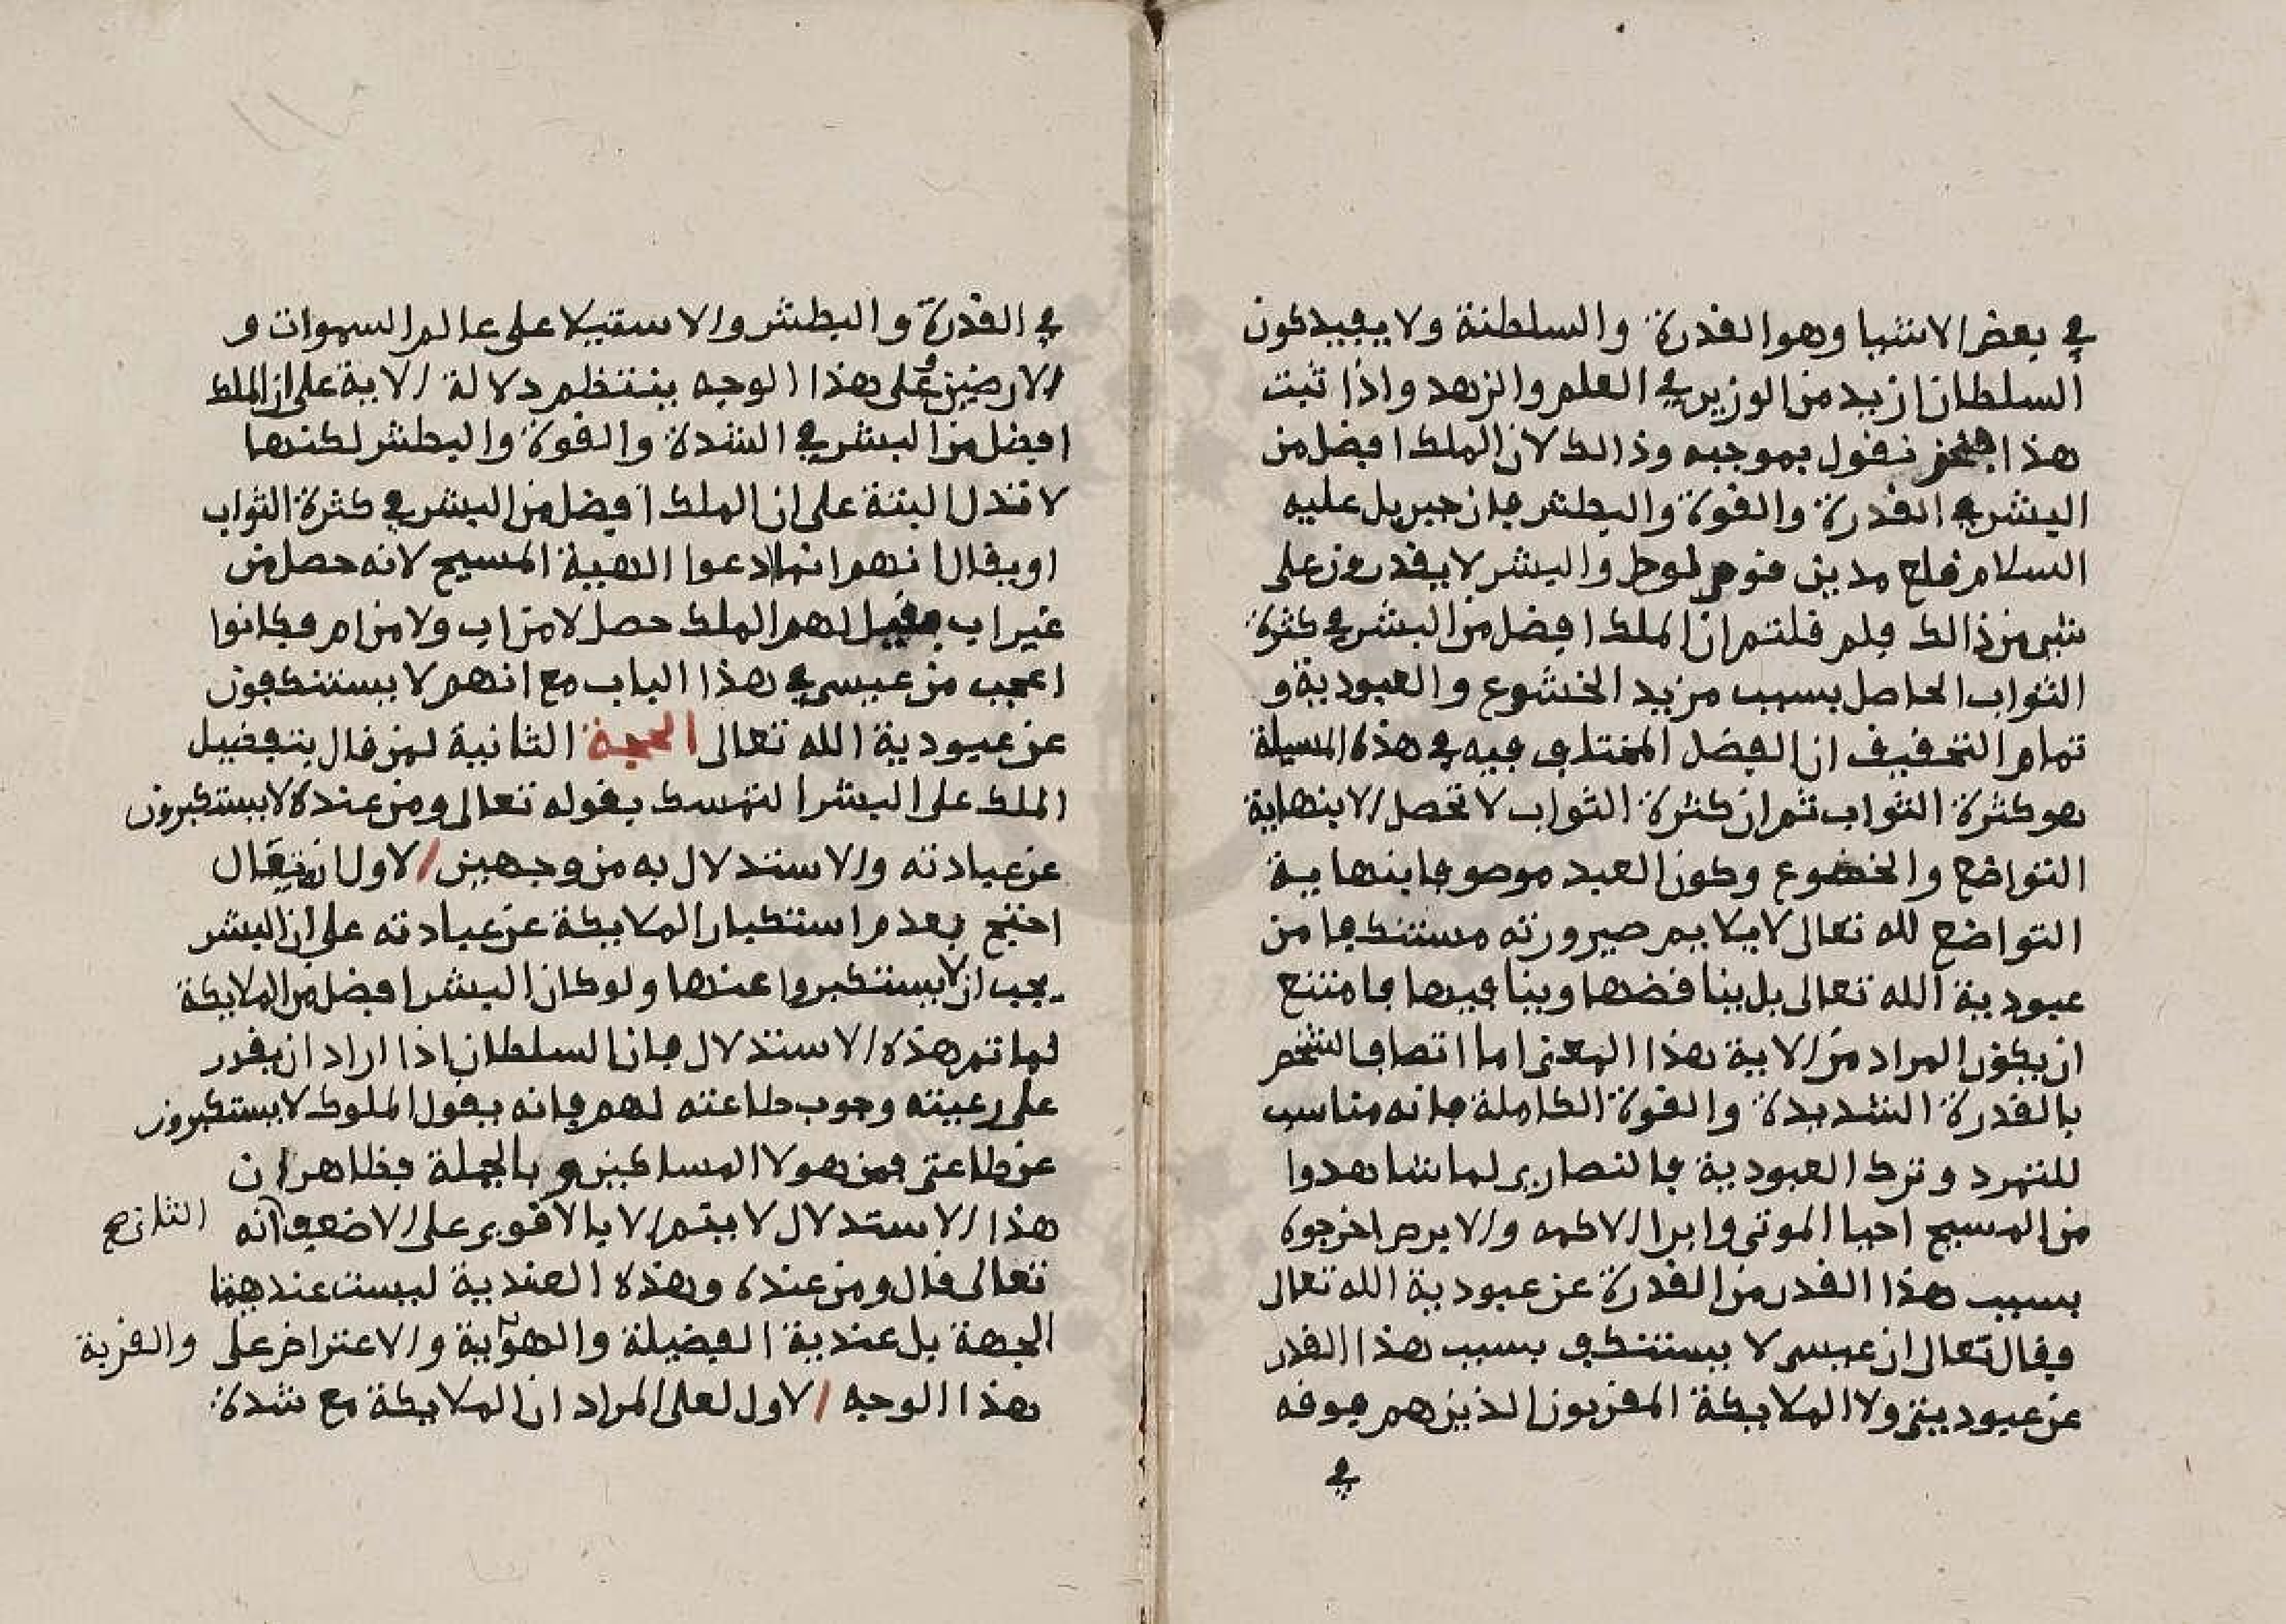 في بعض الاشيا وهو القدرة والسلطنة ولا يفيد كون
السلطان ازيد من الوزير في العلم والزهد واذا ثبت
هذا فنحن نقول بموجبه وذالك لان الملك افضل من
البشر في القدرة والقوة والبطش فان جبريل عليه
السلام قلع مدين قوم لوط والبشر لا يقدرون على
شيء من ذالك فلم قلتم ان الملك افضل من البشر في كثرة
الثواب الحاصل بسبب مزيد الخشوع والعبودية و
تمام التحقيق ان الفضل المختلف فيه في هذه المسيلة
هو كثرة الثواب ثم ان كثرة الثواب لا تحصل الا بنهاية
التواضع والخضوع وكون العبد موصوفا بنهاية
التواضع لله تعالى لا يلايم صيرورته مستنكفا من
عبودية الله تعالى بل يناقضها وينافيها فامتنع
ان يكون المراد من الاية هذا المعنى اما اتصاف الشخص
بالقدرة الشديدة والقوة الكاملة فانه مناسب
للتمرد وترك العبودية فالنصارى لما شاهدوا
من المسيح احيا الموتى وابرا الاكمه والابرص اخرجوه
بسبب هذا القدر من القدرة عن عبودية الله تعالى
فقال تعالى ان عيسى لا يستنكف بسبب هذا القدر
عن عبوديتى ولا الملايكة المقربون الذين هم فوقه
في
في القدرة والبطش والاستيلا على عالم السموات و
الارضين وعلى هذا الوجه ينتظم دلالة الاية على ان الملك
افضل من البشر في الشدة والقوة والبطش لكنها
لا تدل البتة على ان الملك افضل من البشر في كثرة الثواب
او يقال انهم انما ادعوا الهية المسيح لانه حصل من
غير اب فقيل لهم الملك حصل لا من اب ولا من ام فكانوا
اعجب من عيسى في هذا الباب مع انهم لا يستنكفون
عن عبودية الله تعالى الحجة الثانية لمن قال بتفضيل
الملك على البشر التمسك بقوله تعالى ومن عنده لا يستكبرون
عن عبادته والاستدلال به من وجهين الاول ان يقال
احتج بعدم استكبار الملايكة عن عبادته على ان البشر
يجب ان لا يستكبروا عنها ولو كان البشر افضل من الملايكة
لما تم هذه الاستدلال فان السلطان اذا اراد ان يقرر
على رعيته وجوب طاعته لهم فانه يقول الملوك لا يستكبرون
عن طاعتى فمن هولا المساكين وبالجملة فظاهر ان
هذا الاستدلال لا يتم الا بالاقوى على الاضعف الثانى انه
تعالى قال ومن عنده وهذه العندية ليست عندية
الجهة بل عندية الفضيلة والقربة والاعتراض على
هذا الوجه الاول لعل المراد ان الملايكة مع شدة